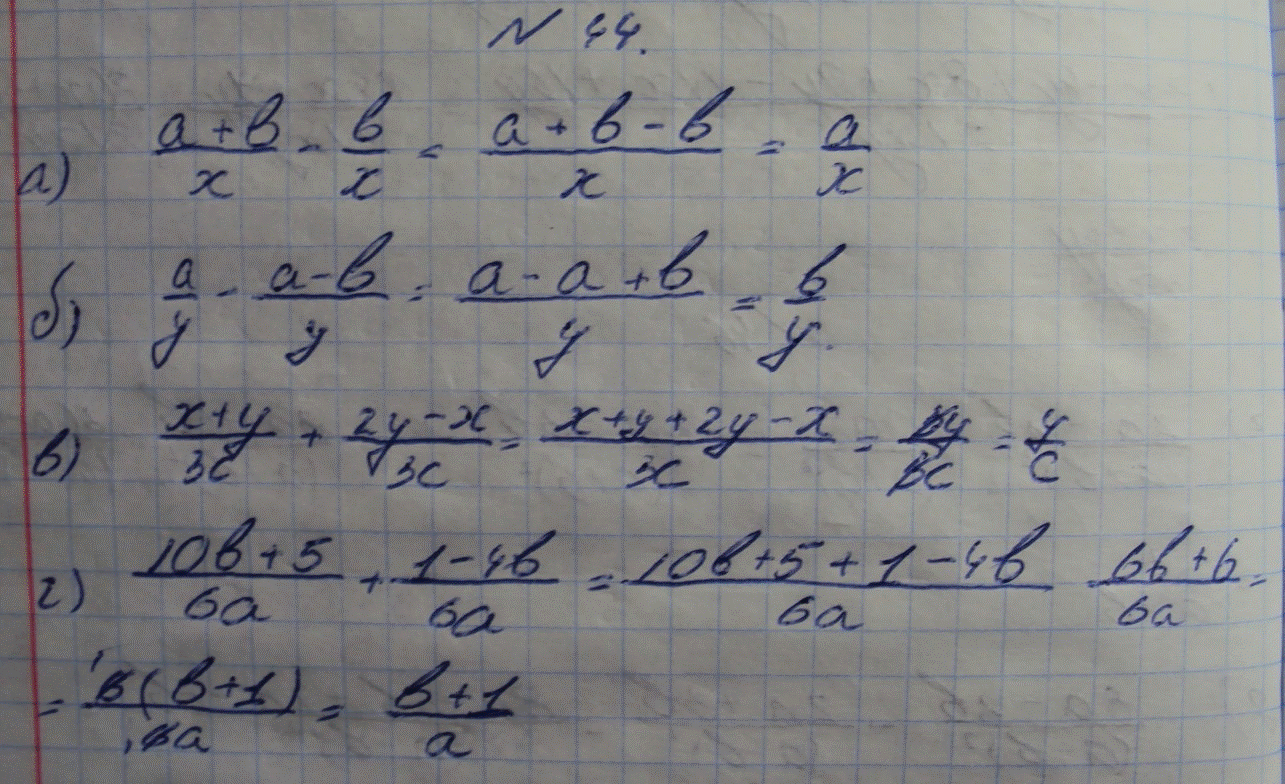 № 44.
а) (a+b)/x - b/x = (a+b-b)/x = a/x
б) a/y - (a-b)/y = (a-a+b)/y = b/y.
в) (x+y)/3c + (2y-x)/3c = (x+y+2y-x)/3c = 3y/3c = y/c
г) (10b+5)/6a + (1-4b)/6a = (10b+5+1-4b)/6a (6b+6)/6a =
= 6(b+1)/6a = (b+1)/a